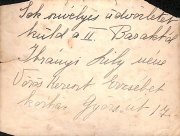 Sok szívélyes üdvözletet
küld a II. Barakból
Ibrányi Lily néne
Vörös kereszt Erzsébet
kórház Győri út 17.